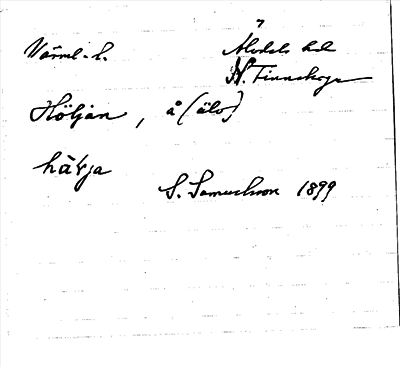 Värml. l. Älvdals hd
N. Finnskoga
Höljan, å (älv)
hä
S. Samuelsson 1899